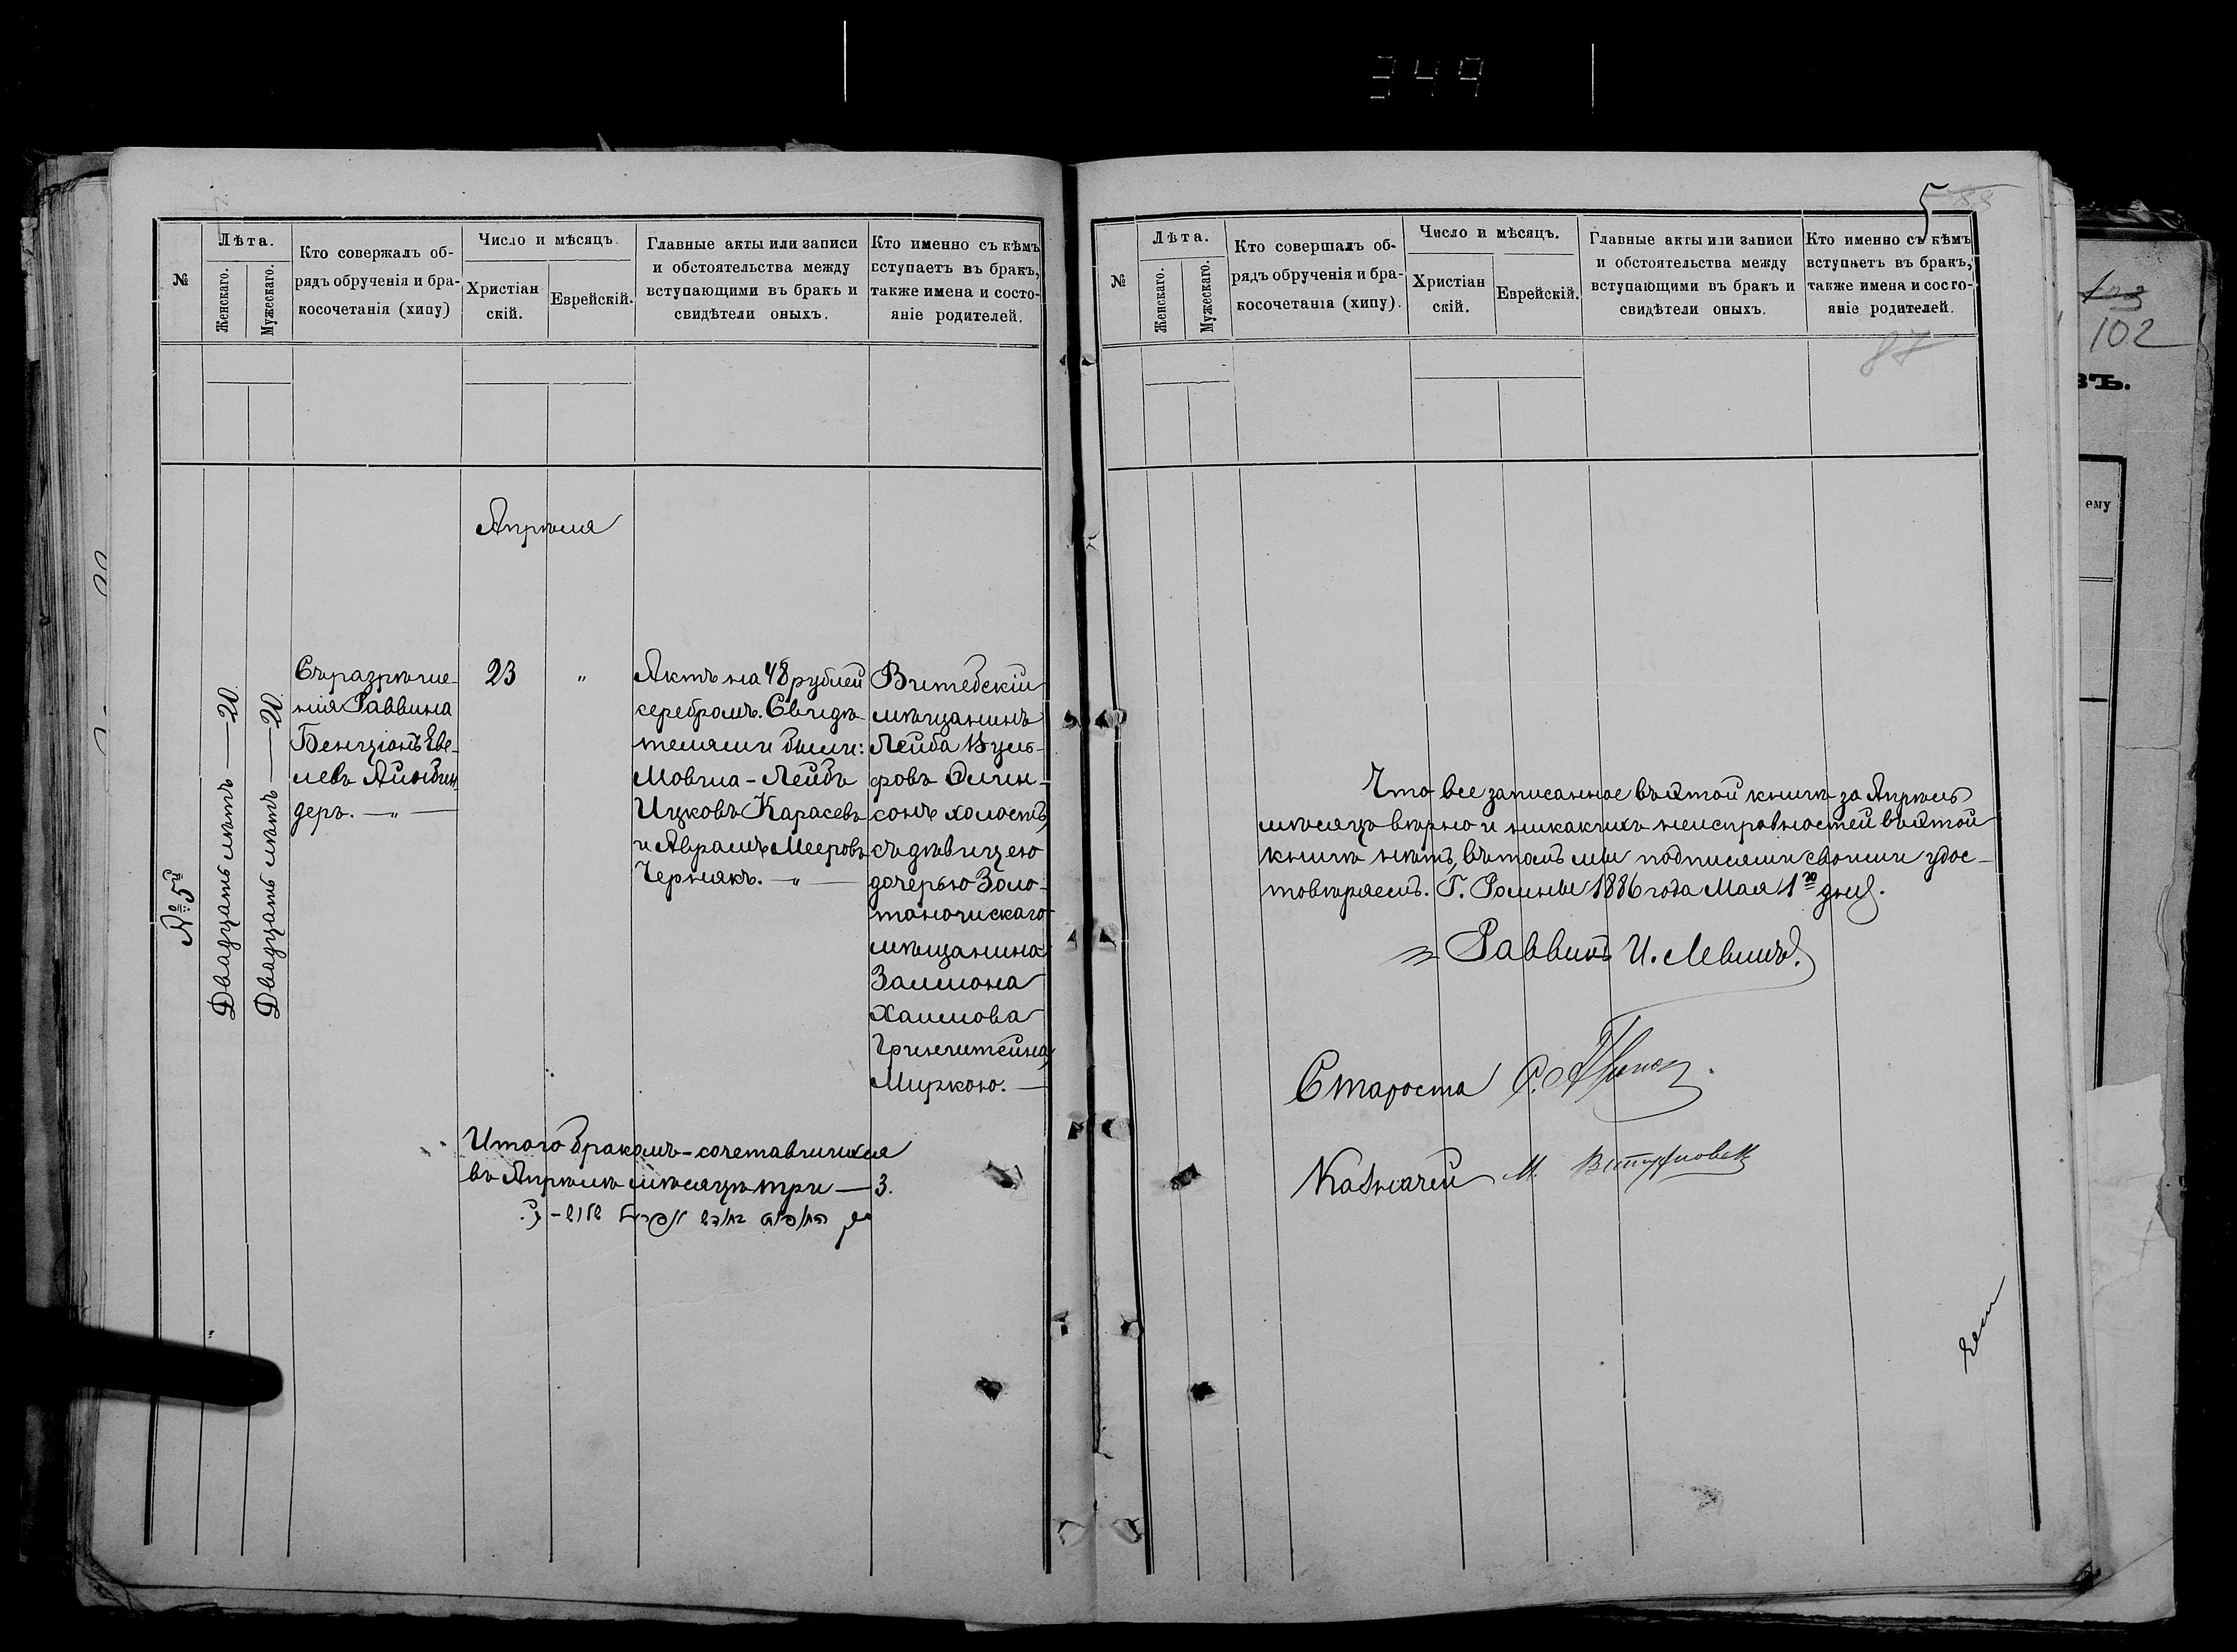 349
№
Лѣта.
Женскаго.
Мужескаго.
Кто совержалъ об-
рядъ обрученія и бра-
косочетанія (хипу)
Число и мѣсяцъ.
Христіан
скій.
Еврейскій.
Главные акты или записи
и обстоятельства между
вступающими въ бракъ и
свидѣтели оныхъ.
Кто именно съ кѣмъ
вступаетъ въ бракъ,
также имена и состо-
яніе родителей.
Апрѣля
№ 5й
Двадцать лѣтъ — 20
Двадцать лѣтъ — 20
Съ разрѣше-
нія Раввина
Бенціонъ Еве-
левъ Айнбин
деръ. — „ —
23
„
Актъ на 48 рублей
серебромъ. Свидѣ-
телями были:
Мовша-Лейбъ
Ицковъ Карасевъ
и Абрамъ Мееровъ
Чернякъ. — „ —
Витебскій
мѣщанинъ
Лейба Вуль-
фовъ Элин-
сонъ холостъ,
съ дѣвицею
дочерью Золо-
тоношскаго
мѣщанина
Залмона
Хаимова
Гринштейна,
Миркою. —
Итого бракомъ-сочетавшихся
въ Апрѣлѣ мѣсяцѣ три — 3.
5
88
№
Лѣта.
Женскаго.
Мужескаго.
Кто совершалъ об-
рядъ обрученія и бра-
косочетанія (хипу).
Число и мѣсяцъ.
Христіан
скій.
Еврейскій.
Главные акты или записи
и обстоятельства между
вступающими въ бракъ и
свидѣтели оныхъ.
Кто именно съ кѣмъ
вступаетъ въ бракъ,
также имена и состо-
яніе родителей.
87
Что все записанное въ этой книгѣ за Апрѣль
мѣсяцъ вѣрно и никакихъ неисправностей въ этой
книгѣ нѣтъ, въ томъ мы подписями своими удос-
товѣряемъ. Г. Ромны 1886 года Мая 1го дня.
Раввинъ И. Левинъ.
Староста
Казначей М.
103
102
въ.
ему